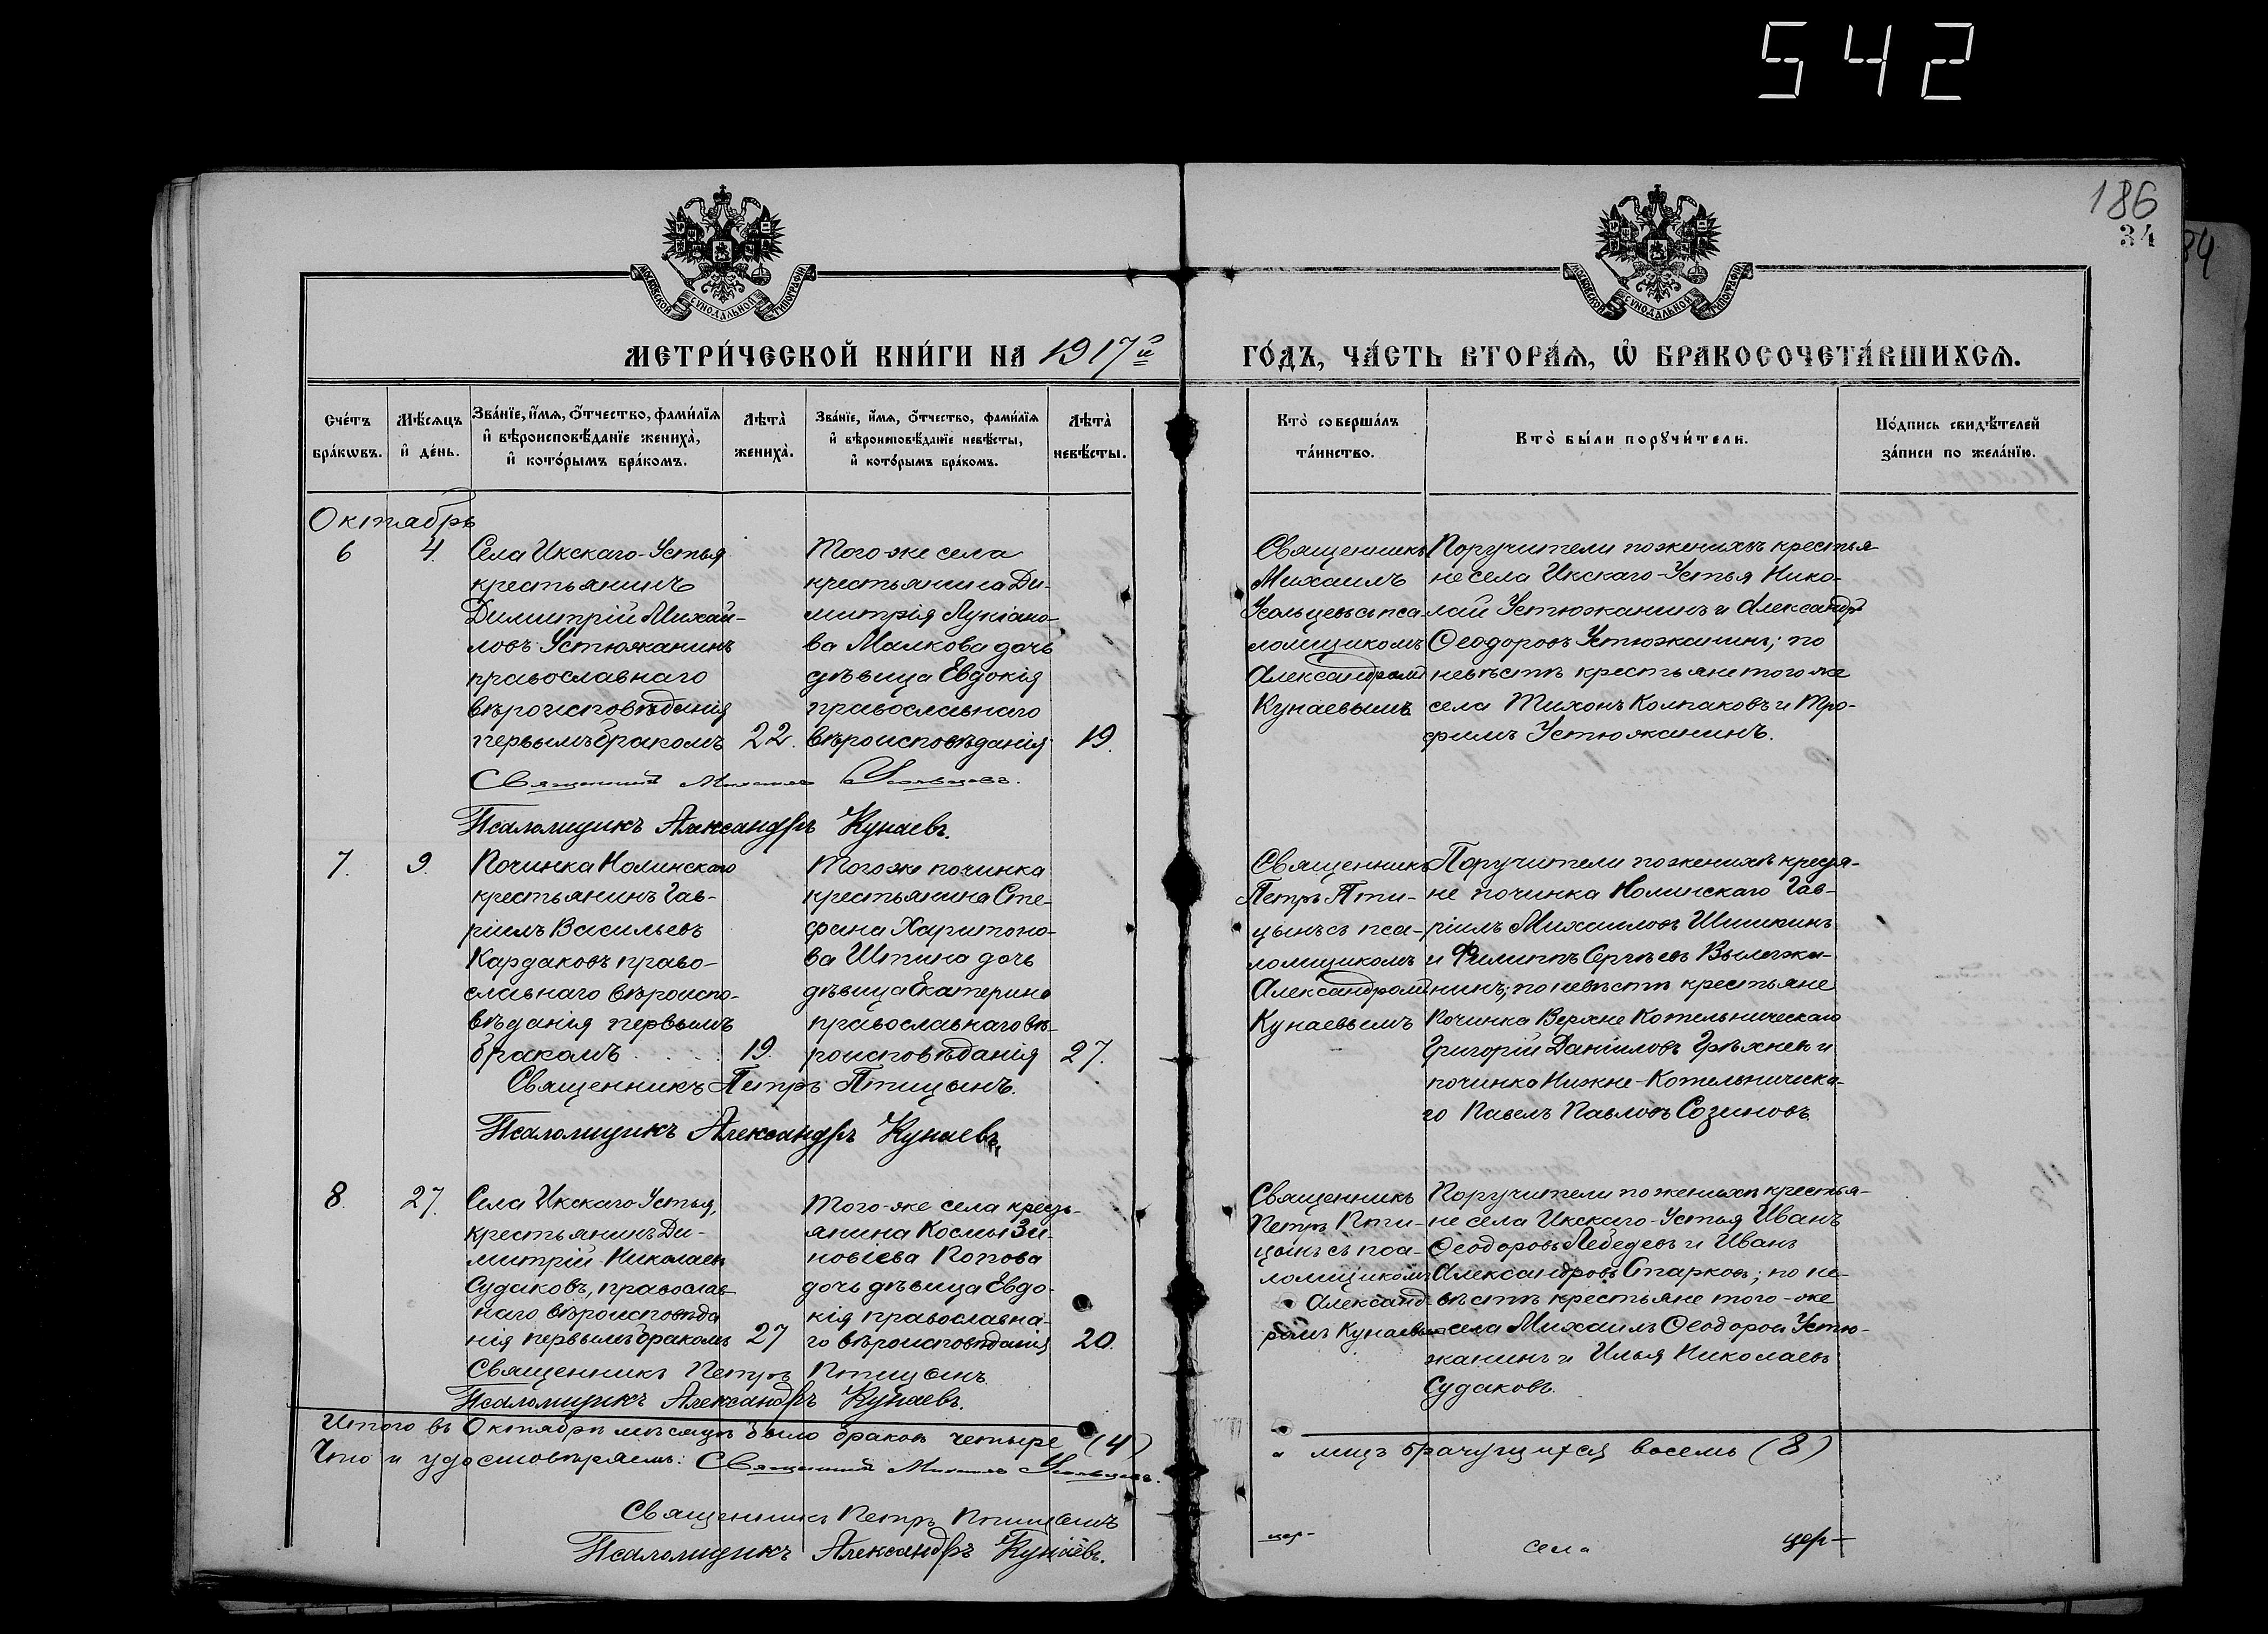 542
186
34
84
МОСКОВСКОЙ СѴНОДАЛЬНОЙ ТИПОГРАФІИ
МОСКОВСКОЙ СѴНОДАЛЬНОЙ ТИПОГРАФІИ
МЕТРИ́ЧЕСКОЙ КНИ́ГИ НА 1917й
ГО́ДЪ, ЧА́СТЬ ВТОРА́Я, Ѡ БРАКОСОЧЕТА́ВШИХСЯ.
Сче́тъ бра́кѡвъ.
Мѣ́сяцъ и҆ де́нь.
Зва́нїе, и҆́мя, ѻ҆́тчество, фами́лїя
и҆ вѣроисповѣ́данїе жениха̀,
и҆ кото́рымъ бра́комъ.
Лѣта̀ жениха̀.
Зва́нїе, и҆́мя, ѻ҆́тчество, фами́лїя
и҆ вѣроисповѣ́данїе невѣ́сты,
и҆ кото́рымъ бра́комъ.
Лѣта̀ невѣ́сты.
Кто̀ соверша́лъ та́инство.
Кто̀ бы́ли порꙋчи́тели.
По́дпись свидѣ́телей
за́писи по жела́нїю.
Октябрь
6
4.
Села Икскаго-Устья
крестьянинъ
Димитрій Михай-
ловъ Устюжанинъ
православнаго
вѣроисповѣданія
первымъ бракомъ
22.
Того-же села
крестьянина Ди-
митрія Лукіано-
ва Малкова дочь
дѣвица Евдокія
православнаго
вѣроисповѣданія
19.
Священникъ
Михаилъ
Усольцевъ съ пса-
ломщикомъ
Александромъ
Кунаевымъ
Поручители по женихѣ крестья-
не села Икскаго-Устья Нико-
лай Устюжанинъ и Александръ
Ѳеодоровъ Устюжанинъ; по
невѣстѣ крестьяне того же
села Тихонъ Колпаковъ и Тро-
фимъ Устюжанинъ.
Священникъ Михаилъ Усольцевъ.
Псаломщикъ Александръ Кунаевъ.
7.
9.
Починка Нолинскаго
крестьянинъ Гав-
ріилъ Васильевъ
Кардаковъ право-
славнаго вѣроиспо-
вѣданія первымъ
бракомъ
19.
Того же починка
крестьянина Сте-
фана Харитоно-
ва Шпина дочь
дѣвица Екатерина
православнаго вѣ-
роисповѣданія
27.
Священникъ
Петръ Пти-
цынъ съ пса-
ломщикомъ
Александромъ
Кунаевымъ
Поручители по женихѣ крестья-
не починка Нолинскаго Гав-
ріилъ Михаиловъ Шишкинъ
и Филиппъ Сергѣевъ Вылегжа-
нинъ; по невѣстѣ крестьяне
Починка Верхне Котельническаго
Григорій Даніиловъ Грѣхневъ и
починка Нижне-Котельническа-
го Павелъ Павловъ Созиновъ.
Священникъ Петръ Птицынъ.
Псаломщикъ Александръ Кунаевъ.
8.
27.
Села Икскаго-Устья,
крестьянинъ Ди-
митрій Николаевъ
Судаковъ, православ-
наго вѣроисповѣда
нія первымъ бракомъ
27
Того-же села кресть-
янина Космы Зи-
новіева Попова
дочь дѣвица Евдо-
кія православна-
го вѣроисповѣданія
20.
Священникъ
Петръ Пти-
цынъ съ пса-
ломщикомъ
Александ-
ромъ Кунаевымъ
Поручители по женихѣ крестья-
не села Икскаго-Устья Иванъ
Ѳеодоровъ Лебедевъ и Иванъ
Александровъ Старковъ; по не-
вѣстѣ крестьяне того-же
села Михаилъ Ѳеодоровъ Устю-
жанинъ и Илья Николаевъ
Судаковъ.
Священникъ Петръ Птицынъ
Псаломщикъ Александръ Кунаевъ.
Итого въ Октябрѣ мѣсяцѣ было браковъ четыре (4)
и лицъ брачущихся восемь (8)
Что и удостовѣряемъ: Священникъ Михаилъ Усольцевъ.
Священникъ Петръ Птицынъ
Псаломщикъ Александръ Кунаевъ.
цер-
села
цер-